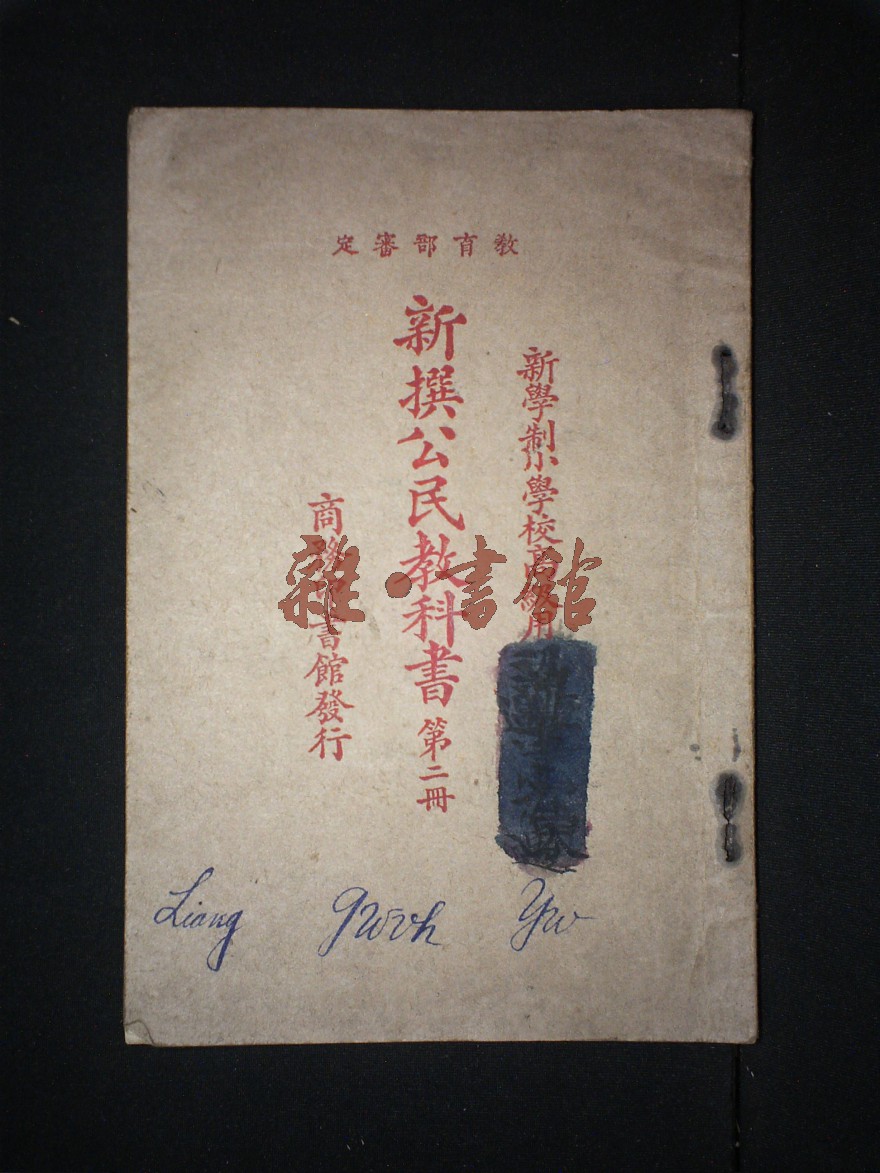 教育部審定
新學制小學校高級用
新撰公民教科書 第二冊
商務印書館發行
雜·書館
Liang gwoh Yw